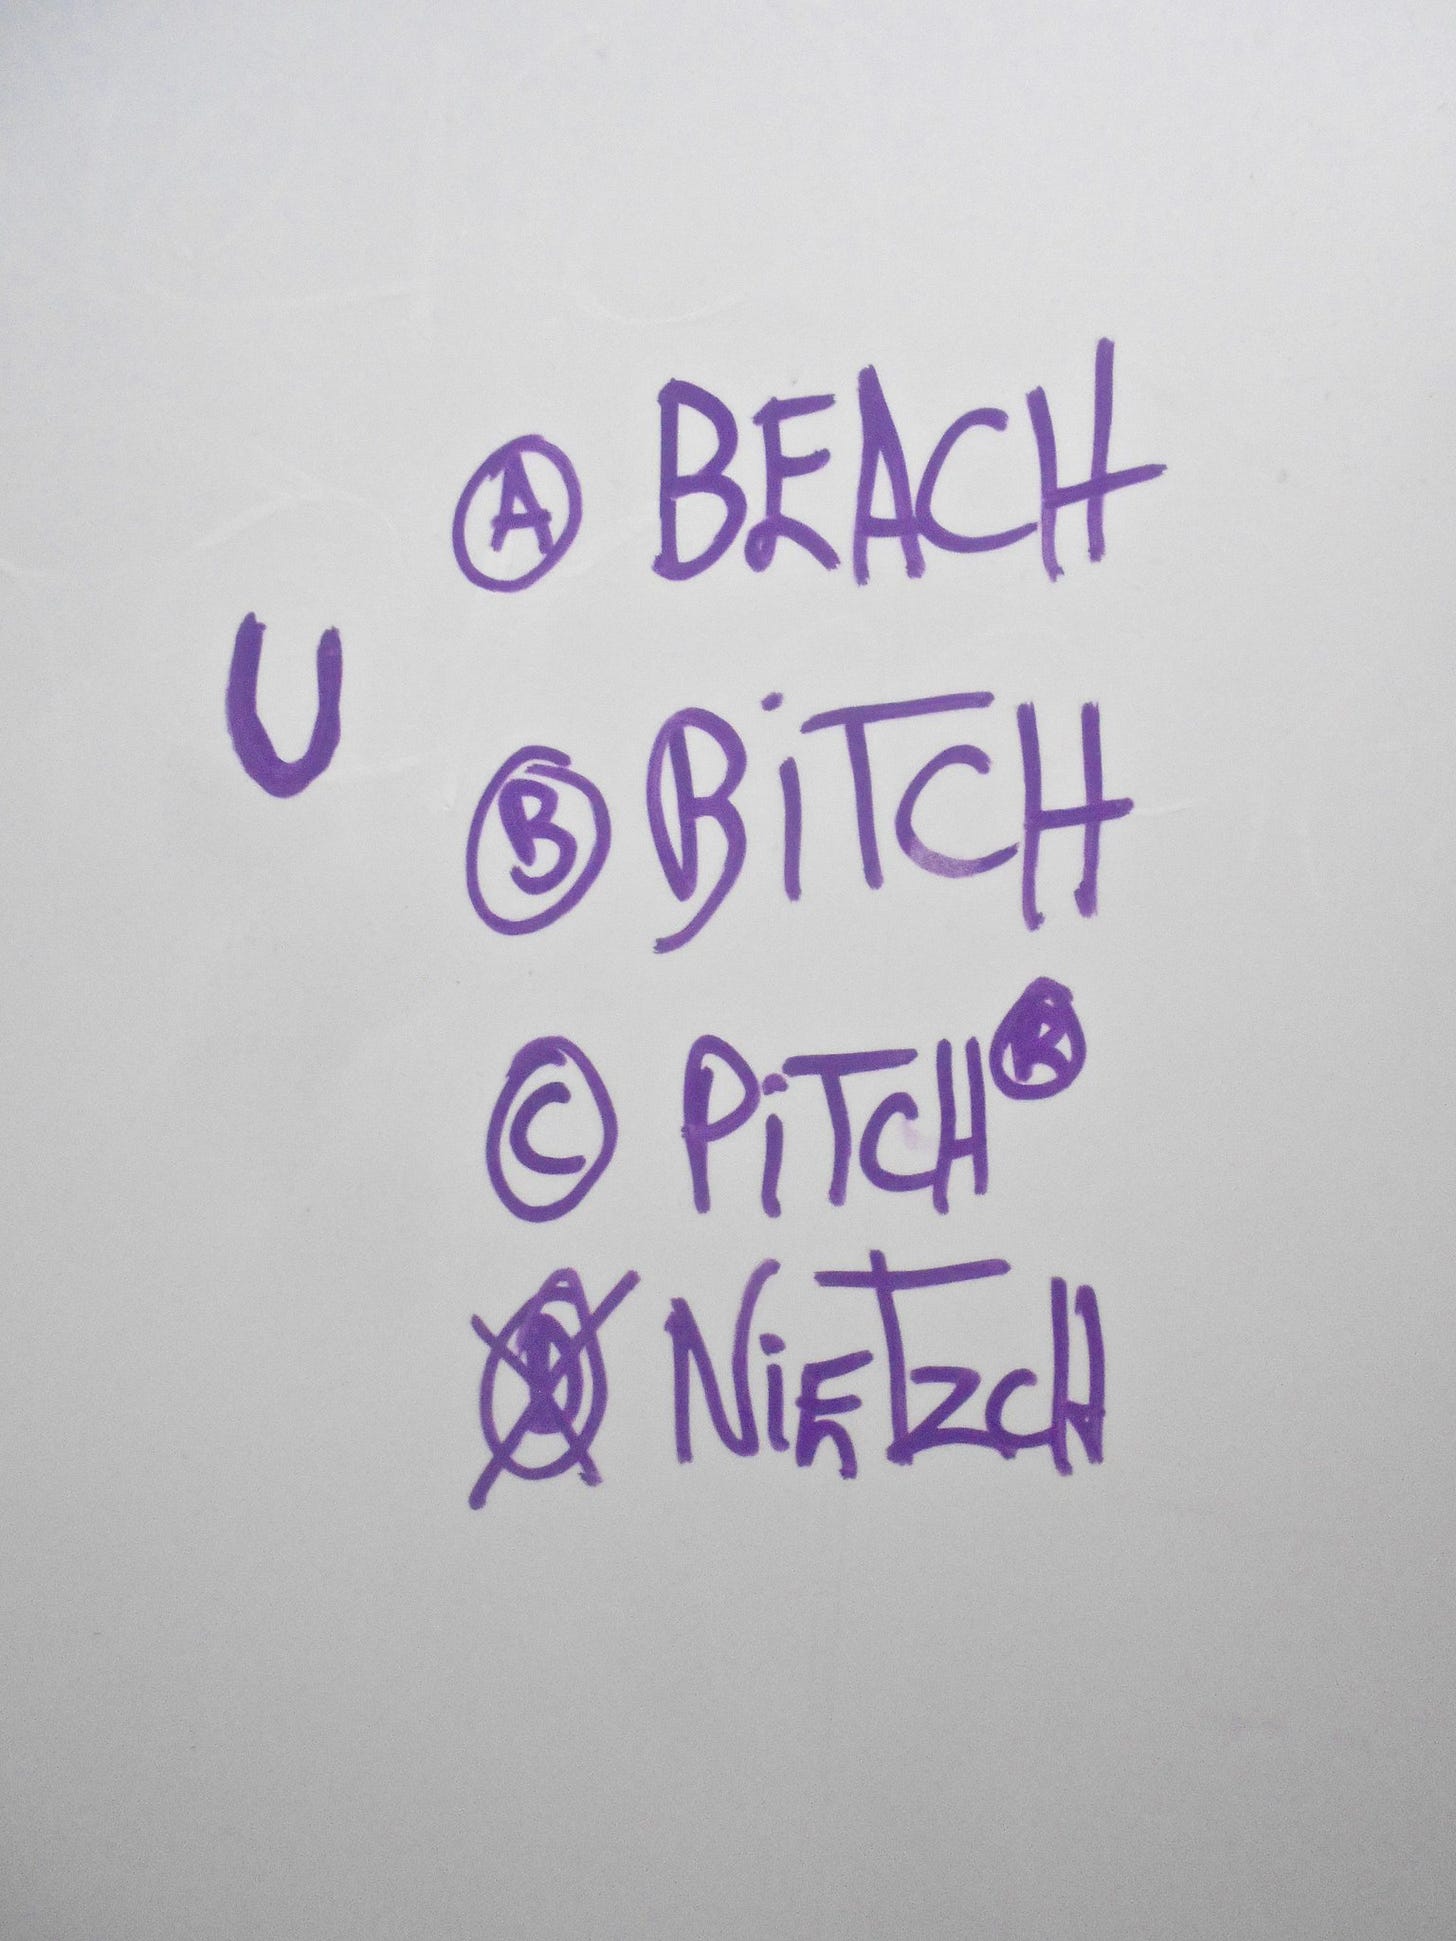 U
Ⓐ BEACH
Ⓑ BiTCH
Ⓒ PiTCH®
NiETZCH